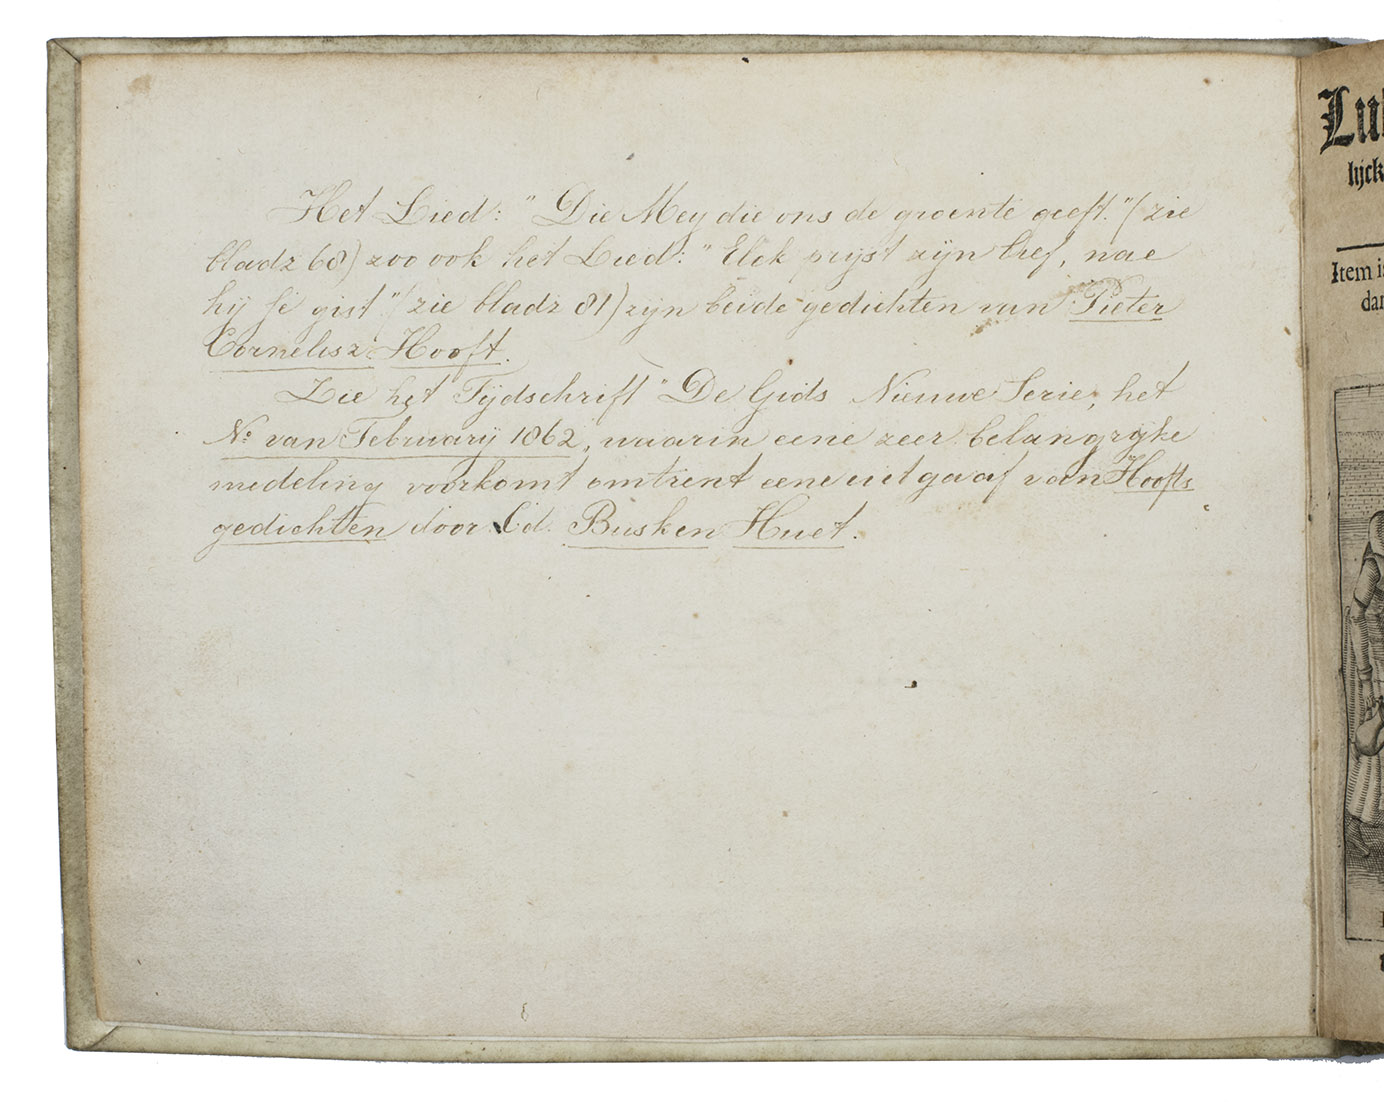 Het Lied: "Die Mey die ons de groente geeft." (zie
bladz 68) zoo ook het Lied: "Elck prijst zijn lief, nae
hij se gist" (zie bladz 81) zijn beide gedichten van Pieter
Cornelisz Hooft.
Zie het Tijdschrift "De Gids Nieuwe Serie, het
No van February 1862, waarin eene zeer belangrijke
medeling voorkomt omtrent eene uitgaaf van Hoofts
gedichten door Cd. Busken Huet.
Item